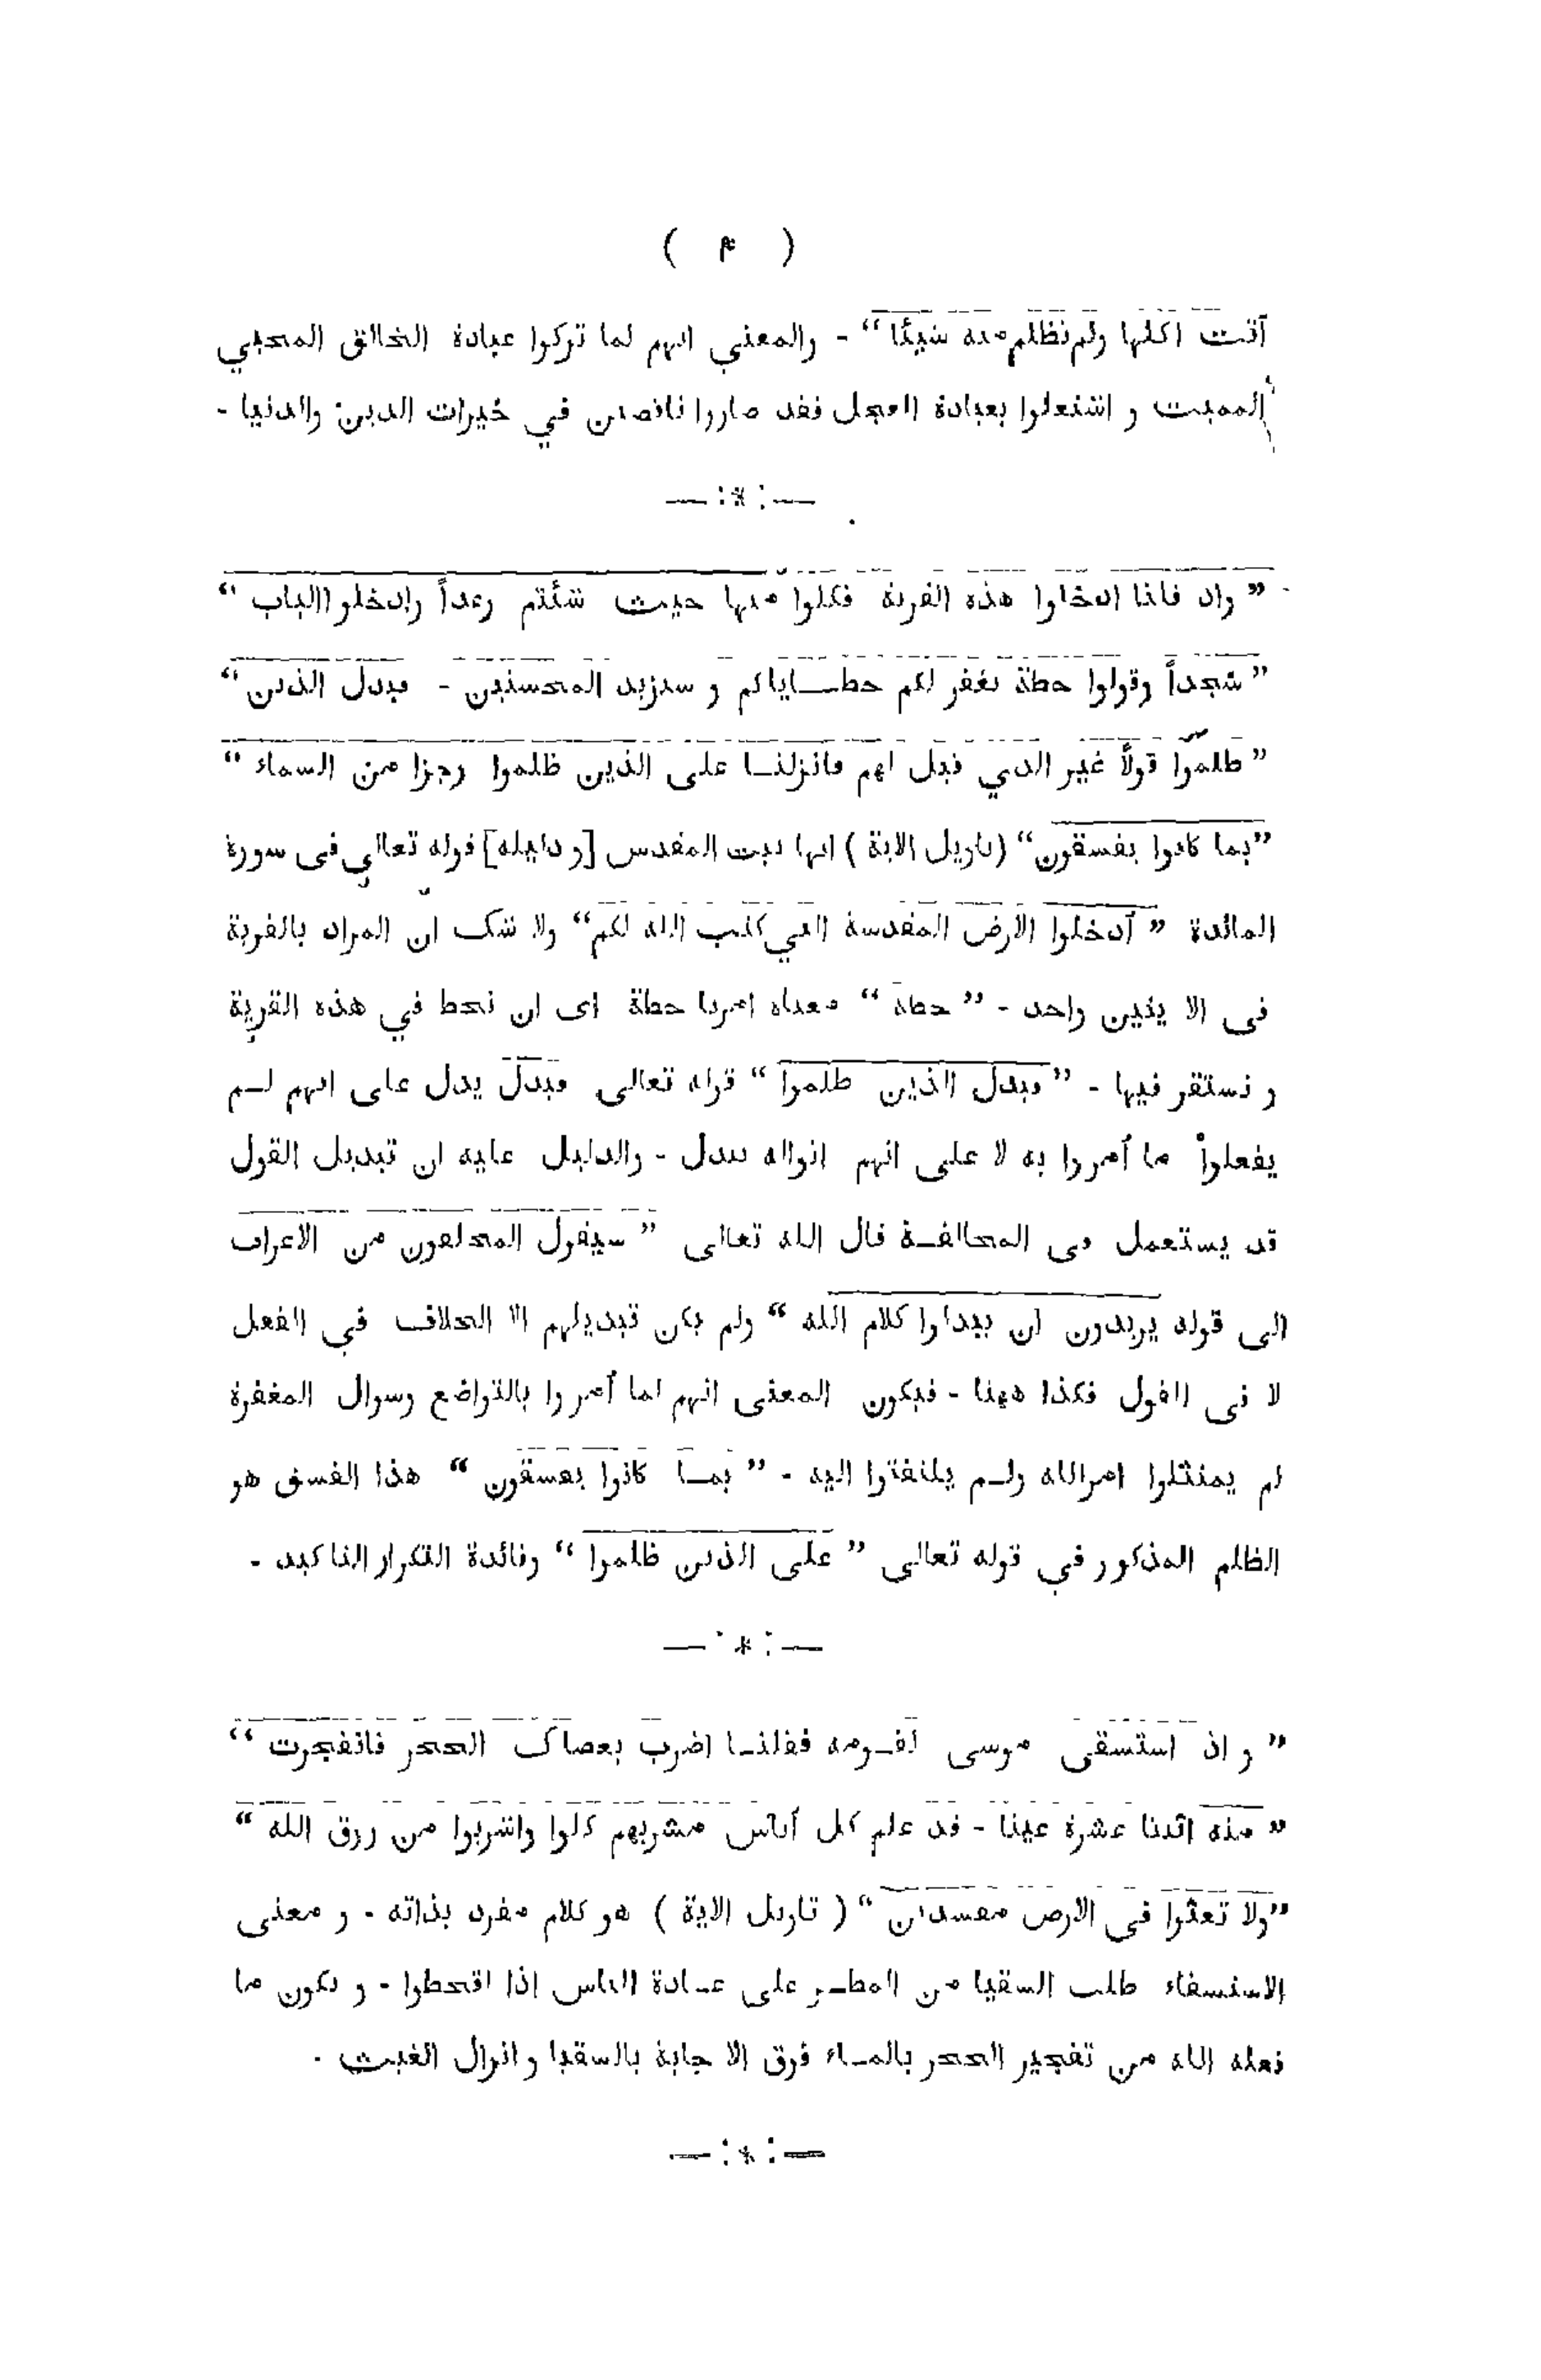 ( ۴ )
آتت اكلها ولم تظلم منه شيئا“ - والمعنى انهم لما تركوا عبادة الخالق المحيي
المميت و اشتغلوا بعبادة العجل فقد صاروا ناقصين في خيرات الدين والدنيا -
—:*:—
” واذ قلنا ادخلوا هذه القرية فكلوا منها حيث شئتم رغداً وادخلو االباب “
” سُجداً وقولوا حطة نغفر لكم خطـاياكم و سنزيد المحسنين - فبدل الذين “
” ظلموا قولًا غير الذي قيل لهم فانزلنـا على الذين ظلموا رجزا من السماء “
”بما كانوا يفسقون“ (تاويل الاية ) انها بيت المقدس [و دليله] قوله تعالى فى سورة
المائدة ” ادخلوا الارض المقدسة التي كتب الله لكم“ ولا شك ان المراد بالقرية
فى الا يتين واحد - ” حطة “ معناه امرنا حطة اى ان نحط في هذه القرية
و نستقر فيها - ” فبدل الذين ظلموا “ قوله تعالى فبدل يدل على انهم لـم
يفعلوا ما أمروا به لا على انهم اتواله ببدل - والدليل عليه ان تبديل القول
قد يستعمل فى المخالفـة قال الله تعالى ” سيقول المخلفون من الاعراب
الى قوله يريدون ان يبدلوا كلام الله “ ولم يكن تبديلهم الا الخلاف في الفعل
لا فى القول فكذا ههنا - فيكون المعنى انهم لما أمروا بالتواضع وسوال المغفرة
لم يمتثلوا امرالله ولـم يلتفتوا اليه - ” بمـا كانوا يفسقون “ هذا الفسق هو
الظلم المذكور في قوله تعالى ” على الذين ظلموا “ وفائدة التكرار التاكيد -
—:*:—
” و اذ استسقى موسى لقـومه فقلنـا اضرب بعصاك الحجر فانفجرت “
” منه اثنتا عشرة عينا - قد علم كل أناس مشربهم كلوا واشربوا من رزق الله “
”ولا تعثوا فى الارض مفسدين “ ( تاويل الاية ) هو كلام مفرد بذاته - و معنى
الاستسقاء طلب السقيا من المطـر على عـادة الناس اذا اقحطوا - و يكون ما
فعله الله من تفجير الحجر بالمـاء فوق الا جابة بالسقيا و انزال الغيث -
—:*:—